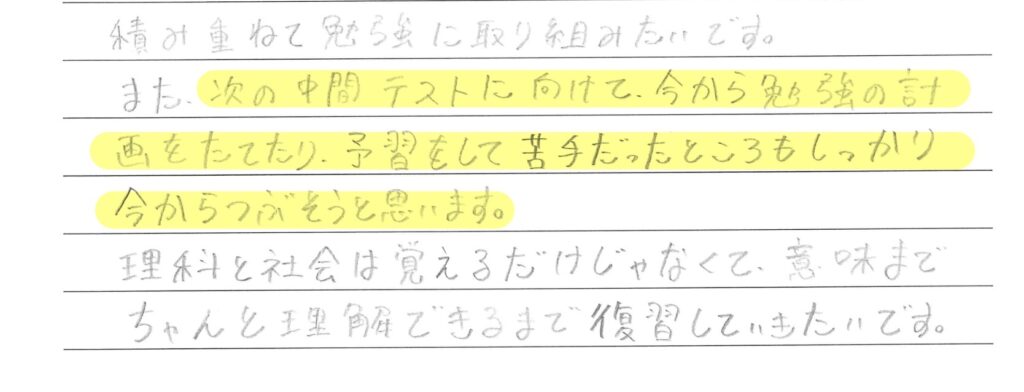 積み重ねて勉強に取り組みたいです。
また、次の中間テストに向けて、今から勉強の計
画をたてたり、予習をして苦手だったところもしっかり
今からつぶそうと思います。
理科と社会は覚えるだけじゃなくて、意味まで
ちゃんと理解できるまで復習していきたいです。